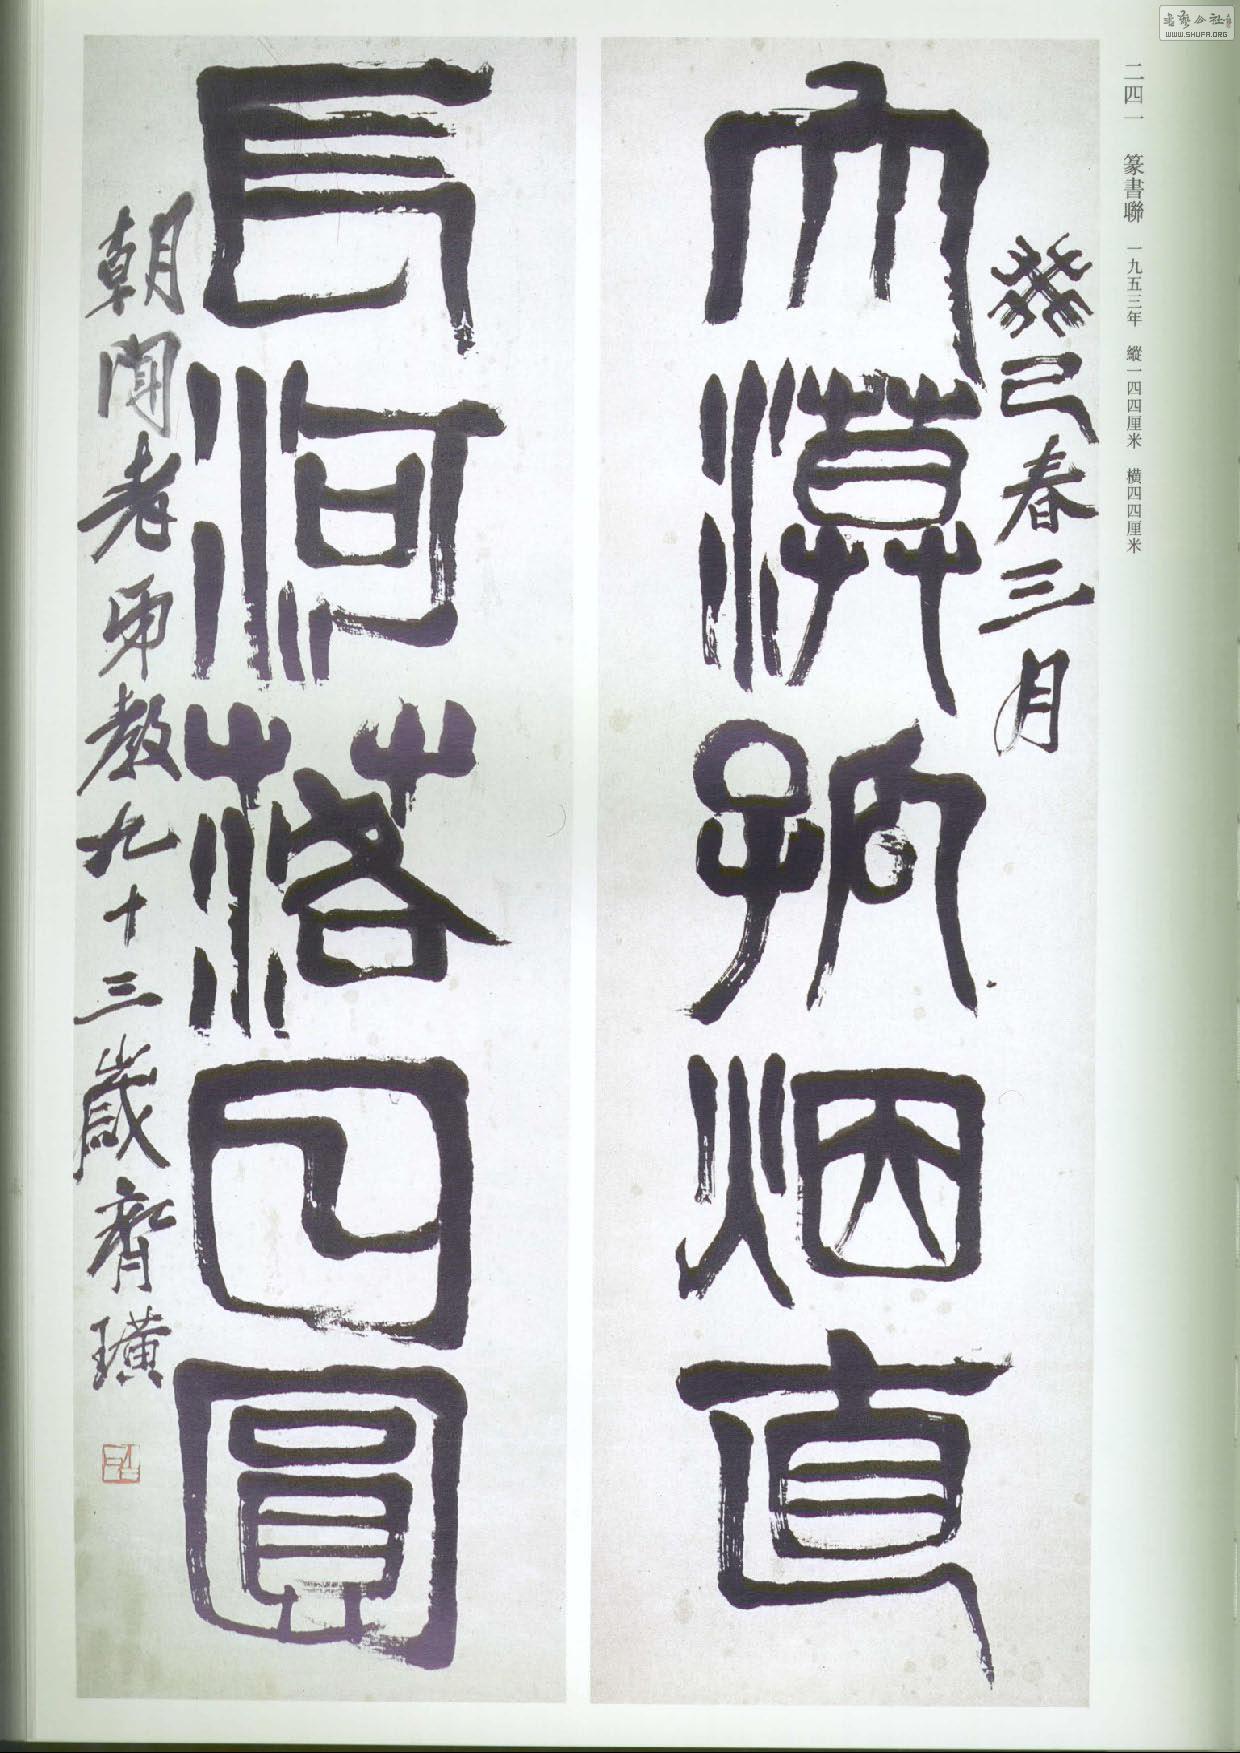 书艺公社
WWW.SHUFA.ORG
二四一 篆書聯 一九五三年 縱一四四厘米 橫四四厘米
癸巳春三月
大漠孤烟直
長河落日圓
朝聞老師教九十三歲齊璜